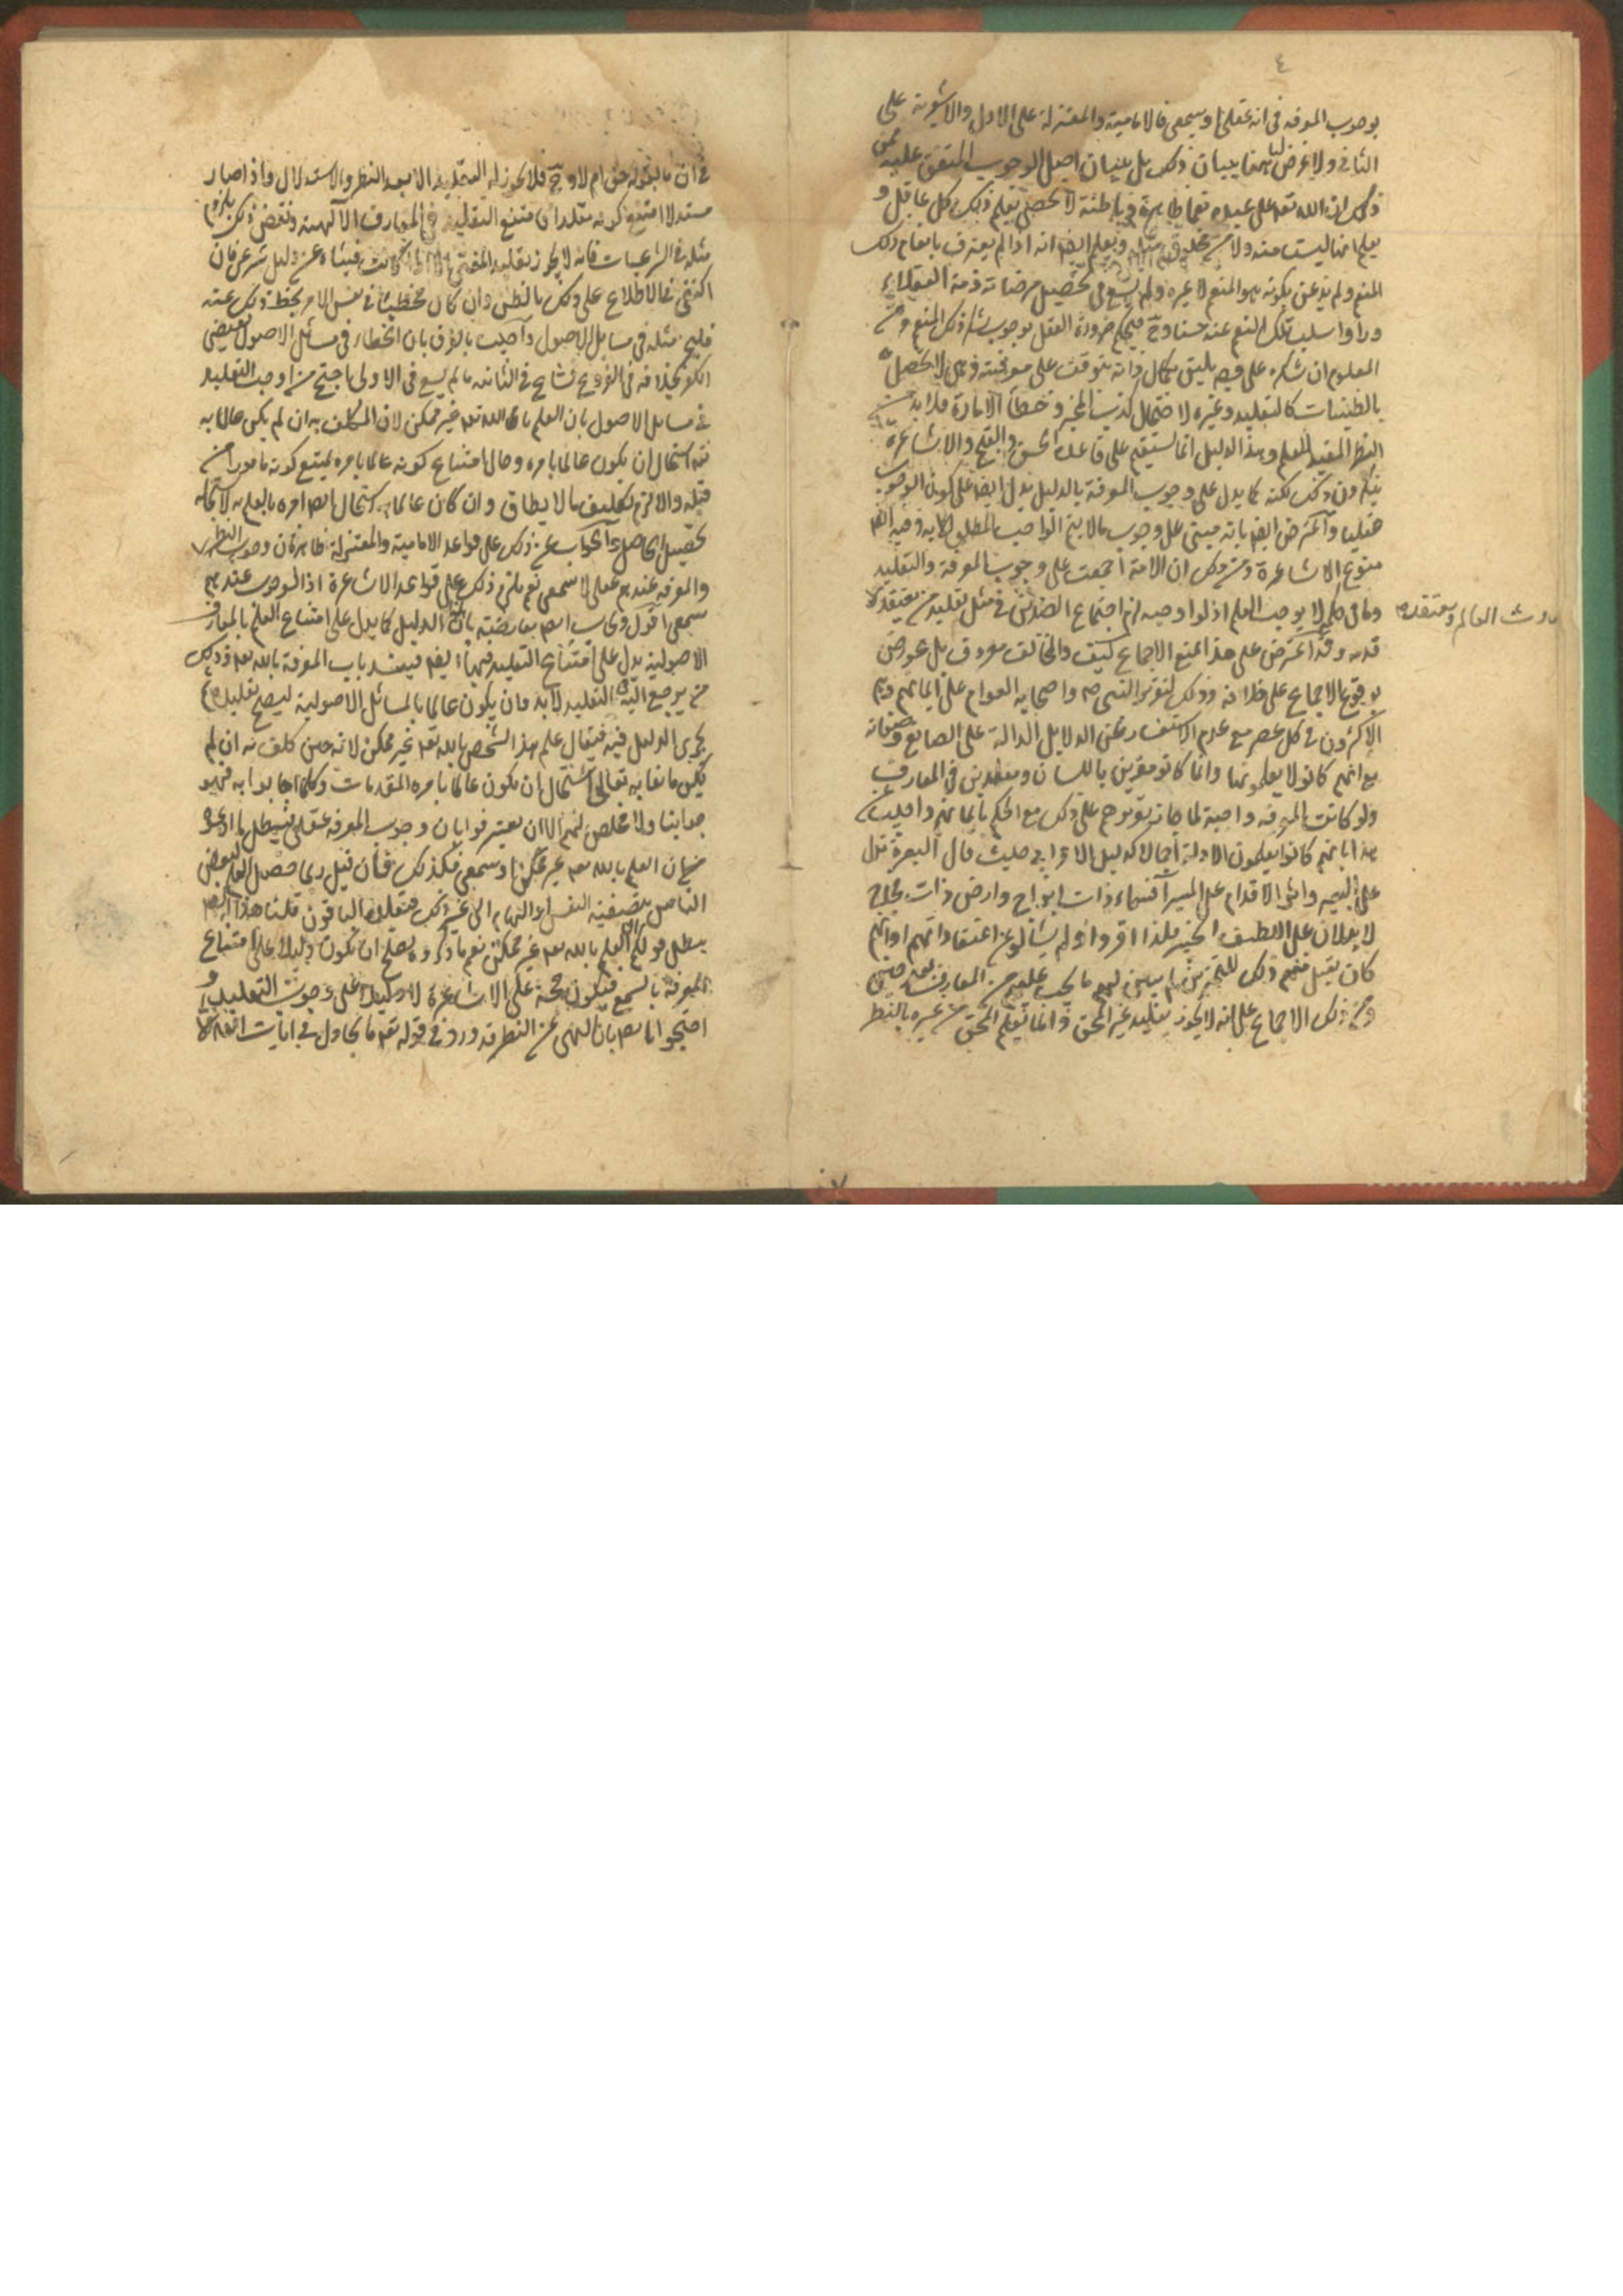 ٤
بوجوب المعرفه في انه عقلي او سمعي فالامامية والمعتزلة على الاول والاشعرية على
الثاني ولا غرض لنا هنا ببيان ذلك بل ببيان اصل الوجوب المتفق عليه فمن
ذلك ان لله تعه على عبيده نعما ظاهرة وباطنة لا تحصى يعلم ذلك كل عاقل و
يعلم انها ليست منه ولا من مخلوق مثله ويعلم ايضا انه اذا لم يعترف بانعام ذلك
المنعم ولم يذعن بكونه هو المنعم لا غيره ولم يسع في تحصيل مرضاته ذمه العقلاء
وراوا سلب تلك النعم عنه حسنا وح فيحكم ضرورة العقل بوجوب شكر ذلك المنعم ومن
المعلوم ان شكره على وجه يليق بكمال ذاته يتوقف على معرفته وهي لا تحصل
بالظنيات كالتقليد وغيره لاحتمال كذب المخبر وخطأ الامارة فلا بد من
النظر المفيد للعلم وهذا الدليل انما يستقيم على قاعدة الحسن والقبح والاشاعرة
ينكرون ذلك لكنه كما يدل على وجوب المعرفة بالدليل يدل ايضا على كون الوجوب
عقليا واعترض ايضا بانه مبني على وجوب ما لا يتم الواجب المطلق الا به وفيه ايضا
منوع الاشاعرة ومن ذلك ان الامة اجمعت على وجوب المعرفة والتقليد
وما في حكمه لا يوجب العلم اذ لو اوجبه لزم اجتماع الضدين في مثل تقليد من يعتقد
حدوث العالم ويعتقد
قدمه وقد اعترض على هذا بمنع الاجماع كيف والمخالف معروف بل عورض
بوقوع الاجماع على خلافه وذلك لتقرير النبي ص واصحابه العوام على ايمانهم وهم
الاكثرون في كل عصر مع عدم الاستفسار عن الدلايل الدالة على الصانع وصفاته
مع انهم كانوا لا يعلمونها وانما كانوا مقرين باللسان ومقلدين في المعارف
ولو كانت المعرفه واجبة لما جاز تقريرهم على ذلك مع الحكم بايمانهم واجيب عن
هذا بانهم كانوا يعلمون الادلة اجمالا كدليل الاعرابي حيث قال البعرة تدل
على البعير واثر الاقدام على المسير أفسماء ذات ابراج وارض ذات فجاج
لا يدلان على اللطيف الخبير فلذا اقروا ولم يسألوا عن اعتقاداتهم او انهم
كان يقبل منهم ذلك للتمرين ثم يبين لهم ما يجب عليهم من المعارف بعد حين
ومن ذلك الاجماع على انه لا يجوز تقليد غير المحق وانما يعلم المحق من غيره بالنظر
في ان ما يقوله حق ام لا وح فلا يجوز له التقليد الا بعد النظر والاستدلال واذا صار
مستدلا امتنع كونه مقلدا فامتنع التقليد في المعارف الالهية ونقض ذلك بلزوم
مثله في الشرعيات فانه لا يجوز تقليد المفتي الا اذا كانت فتياه عن دليل شرعي فان
اكتفى في الاطلاع على ذلك بالظن وان كان مخطئا في نفس الامر لحط ذلك عنه
فليجز مثله في مسائل الاصول واجيب بالفرق بان الخطاء في مسائل الاصول يقتضي
الكفر بخلافه في الفروع فساغ في الثانيه ما لم يسغ في الاولى احتج من اوجب التقليد
في مسائل الاصول بان العلم بالله تعه غير ممكن لان المكلف به ان لم يكن عالما به
تعه استحال ان يكون عالما بامره وحال امتناع كونه عالما بامره يمتنع كونه مامورا من
قبله والا لزم تكليف ما لا يطاق وان كان عالما به استحال ايضا امره بالعلم به لاستحاله
تحصيل الحاصل والجواب عن ذلك على قواعد الامامية والمعتزلة ظاهر فان وجوب النظر
والمعرفه عندهم عقلي لا سمعي نعم يلزم ذلك على قواعد الاشاعرة اذ الوجوب عندهم
سمعي اقول ويجاب ايضا معارضة بان هذا الدليل كما يدل على امتناع العلم بالمعارف
الاصولية يدل على امتناع التقليد فيها ايضا فينسد باب المعرفة بالله تعه وذلك
من يرجع اليه في التقليد لا بد وان يكون عالما بالمسائل الاصولية ليصح تقليده ثم
يجري الدليل فيه فيقال علم هذا الشخص بالله تعه غير ممكن لانه حين كلف به ان لم
يكن عالما به تعالى استحال ان يكون عالما بامره المقدمات وكلما اجابوا به فهو
جوابنا ولا مخلص لهم الا ان يعترفوا بان وجوب المعرفه عقلي فيبطل ما ادعوه
من ان العلم بالله تعه غير ممكن او سمعي فكذلك فان قيل ربما حصل العلم لبعض
الناس بتصفية النفس او الهام الى غير ذلك فيقلده الباقون قلنا هذا ايضا
يبطل قولكم ان العلم بالله تعه غير ممكن نعم ما ذكروه يصلح ان يكون دليلا على امتناع
المعرفة بالسمع فيكون حجة على الاشاعرة لا دليلا على وجوب التقليد و
احتجوا ايضا بان النهي عن النظر قد ورد في قوله تعه ما يجادل في ايات الله الا